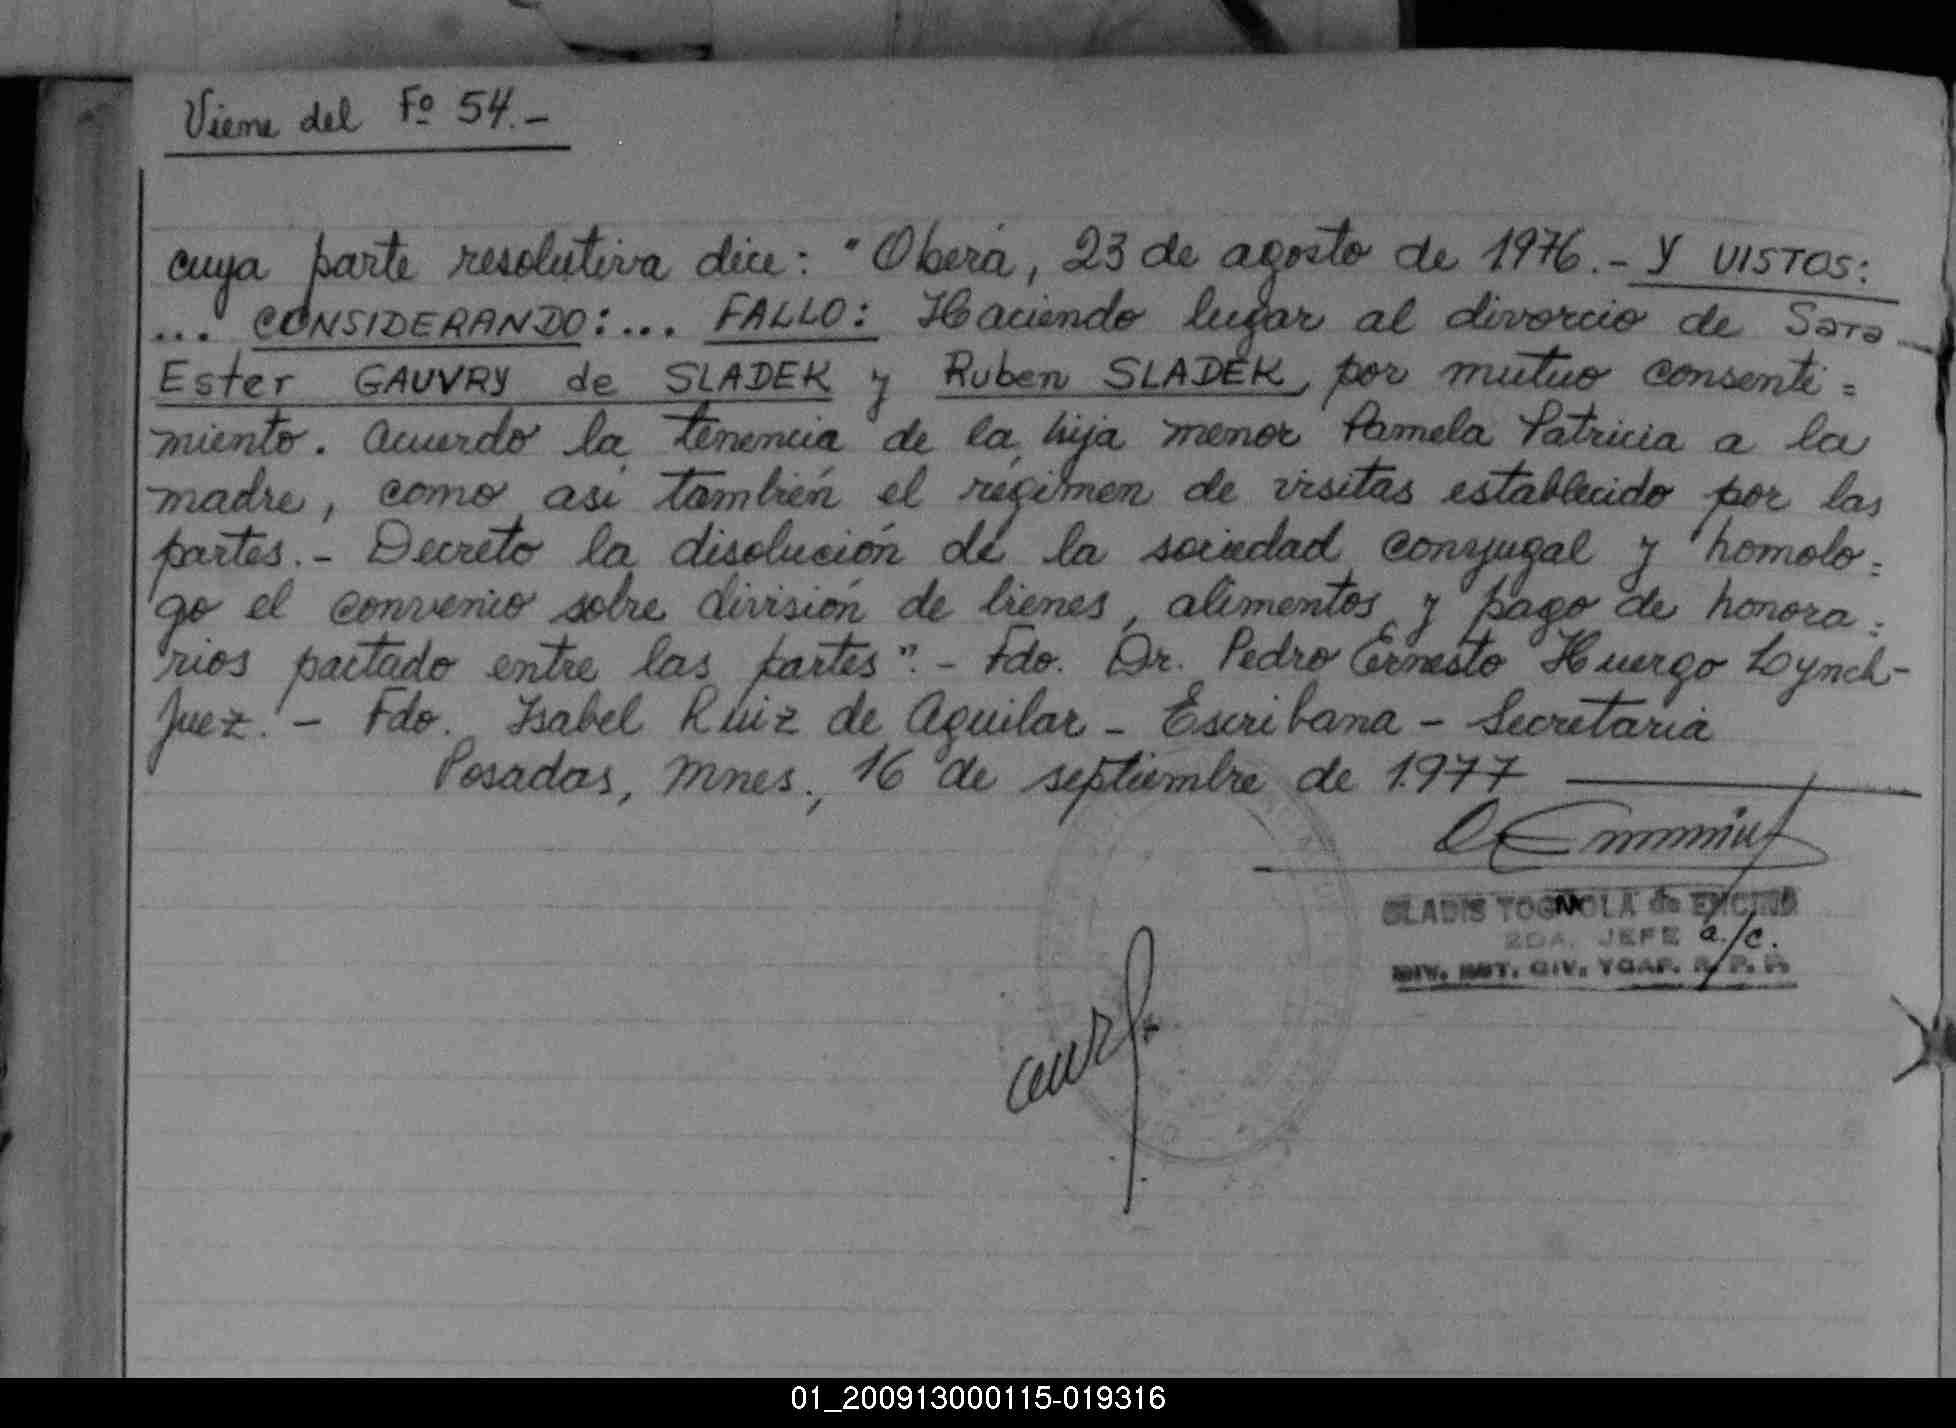 Viene del Fº 54.-
cuya parte resolutiva dice: "Oberá, 23 de agosto de 1976.- Y VISTOS:
... CONSIDERANDO: ... FALLO: Haciendo lugar al divorcio de Sara
Ester GAUVRY de SLADEK y Ruben SLADEK, por mutuo consenti=
miento. Acuerdo la tenencia de la hija menor Pamela Patricia a la
madre, como asi también el régimen de visitas establecido por las
partes.- Decreto la disolución de la sociedad conyugal y homolo=
go el convenio sobre división de bienes, alimentos y pago de honora=
rios pactado entre las partes".- Fdo. Dr. Pedro Ernesto Huergo Lynch-
Juez.- Fdo. Isabel Ruiz de Aguilar - Escribana - Secretaria
Posadas, Mnes., 16 de septiembre de 1.977
GLADIS TOGNOLA de ENCINA
2DA. JEFE a/c.
R. P. P.
01_200913000115-019316